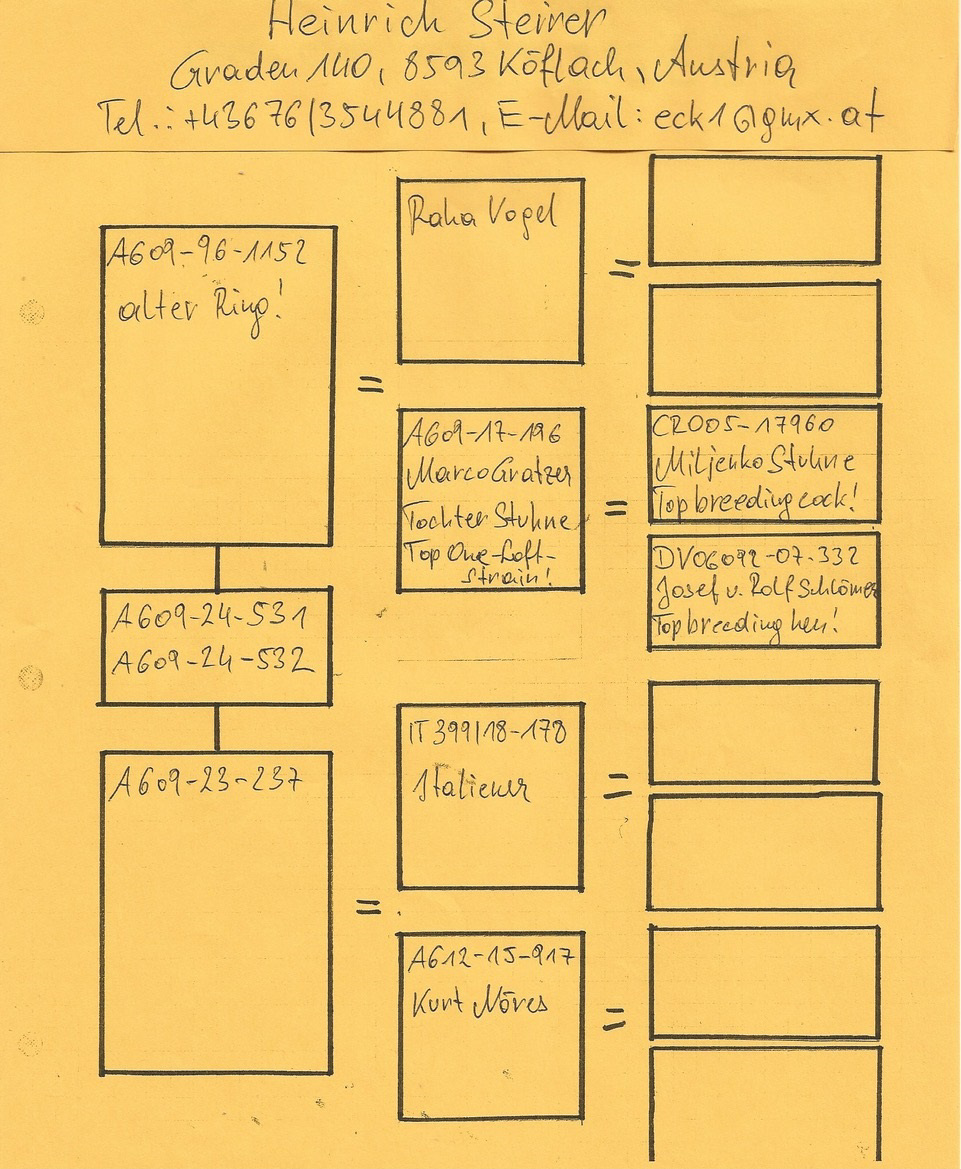 Heinrich Steirer
Graden 140, 8593 Köflach, Austria
Tel.: +43676/3544881, E-Mail: eck1@gmx.at
A609-96-1152
alter Ring!
A609-24-531
A609-24-532
A609-23-237
Raha Vogel
A609-17-196
Marco Gratzer
Tochter Stuhne
Top One-Loft-
Strain!
IT399118-178
Italiener
A612-15-917
Kurt Nöres
CRO05-17960
Miljenko Stuhne
Top breeding cock!
DV06092-07-332
Josef u. Rolf Schlömer
Top breeding hen!
=
=
=
=
=
=